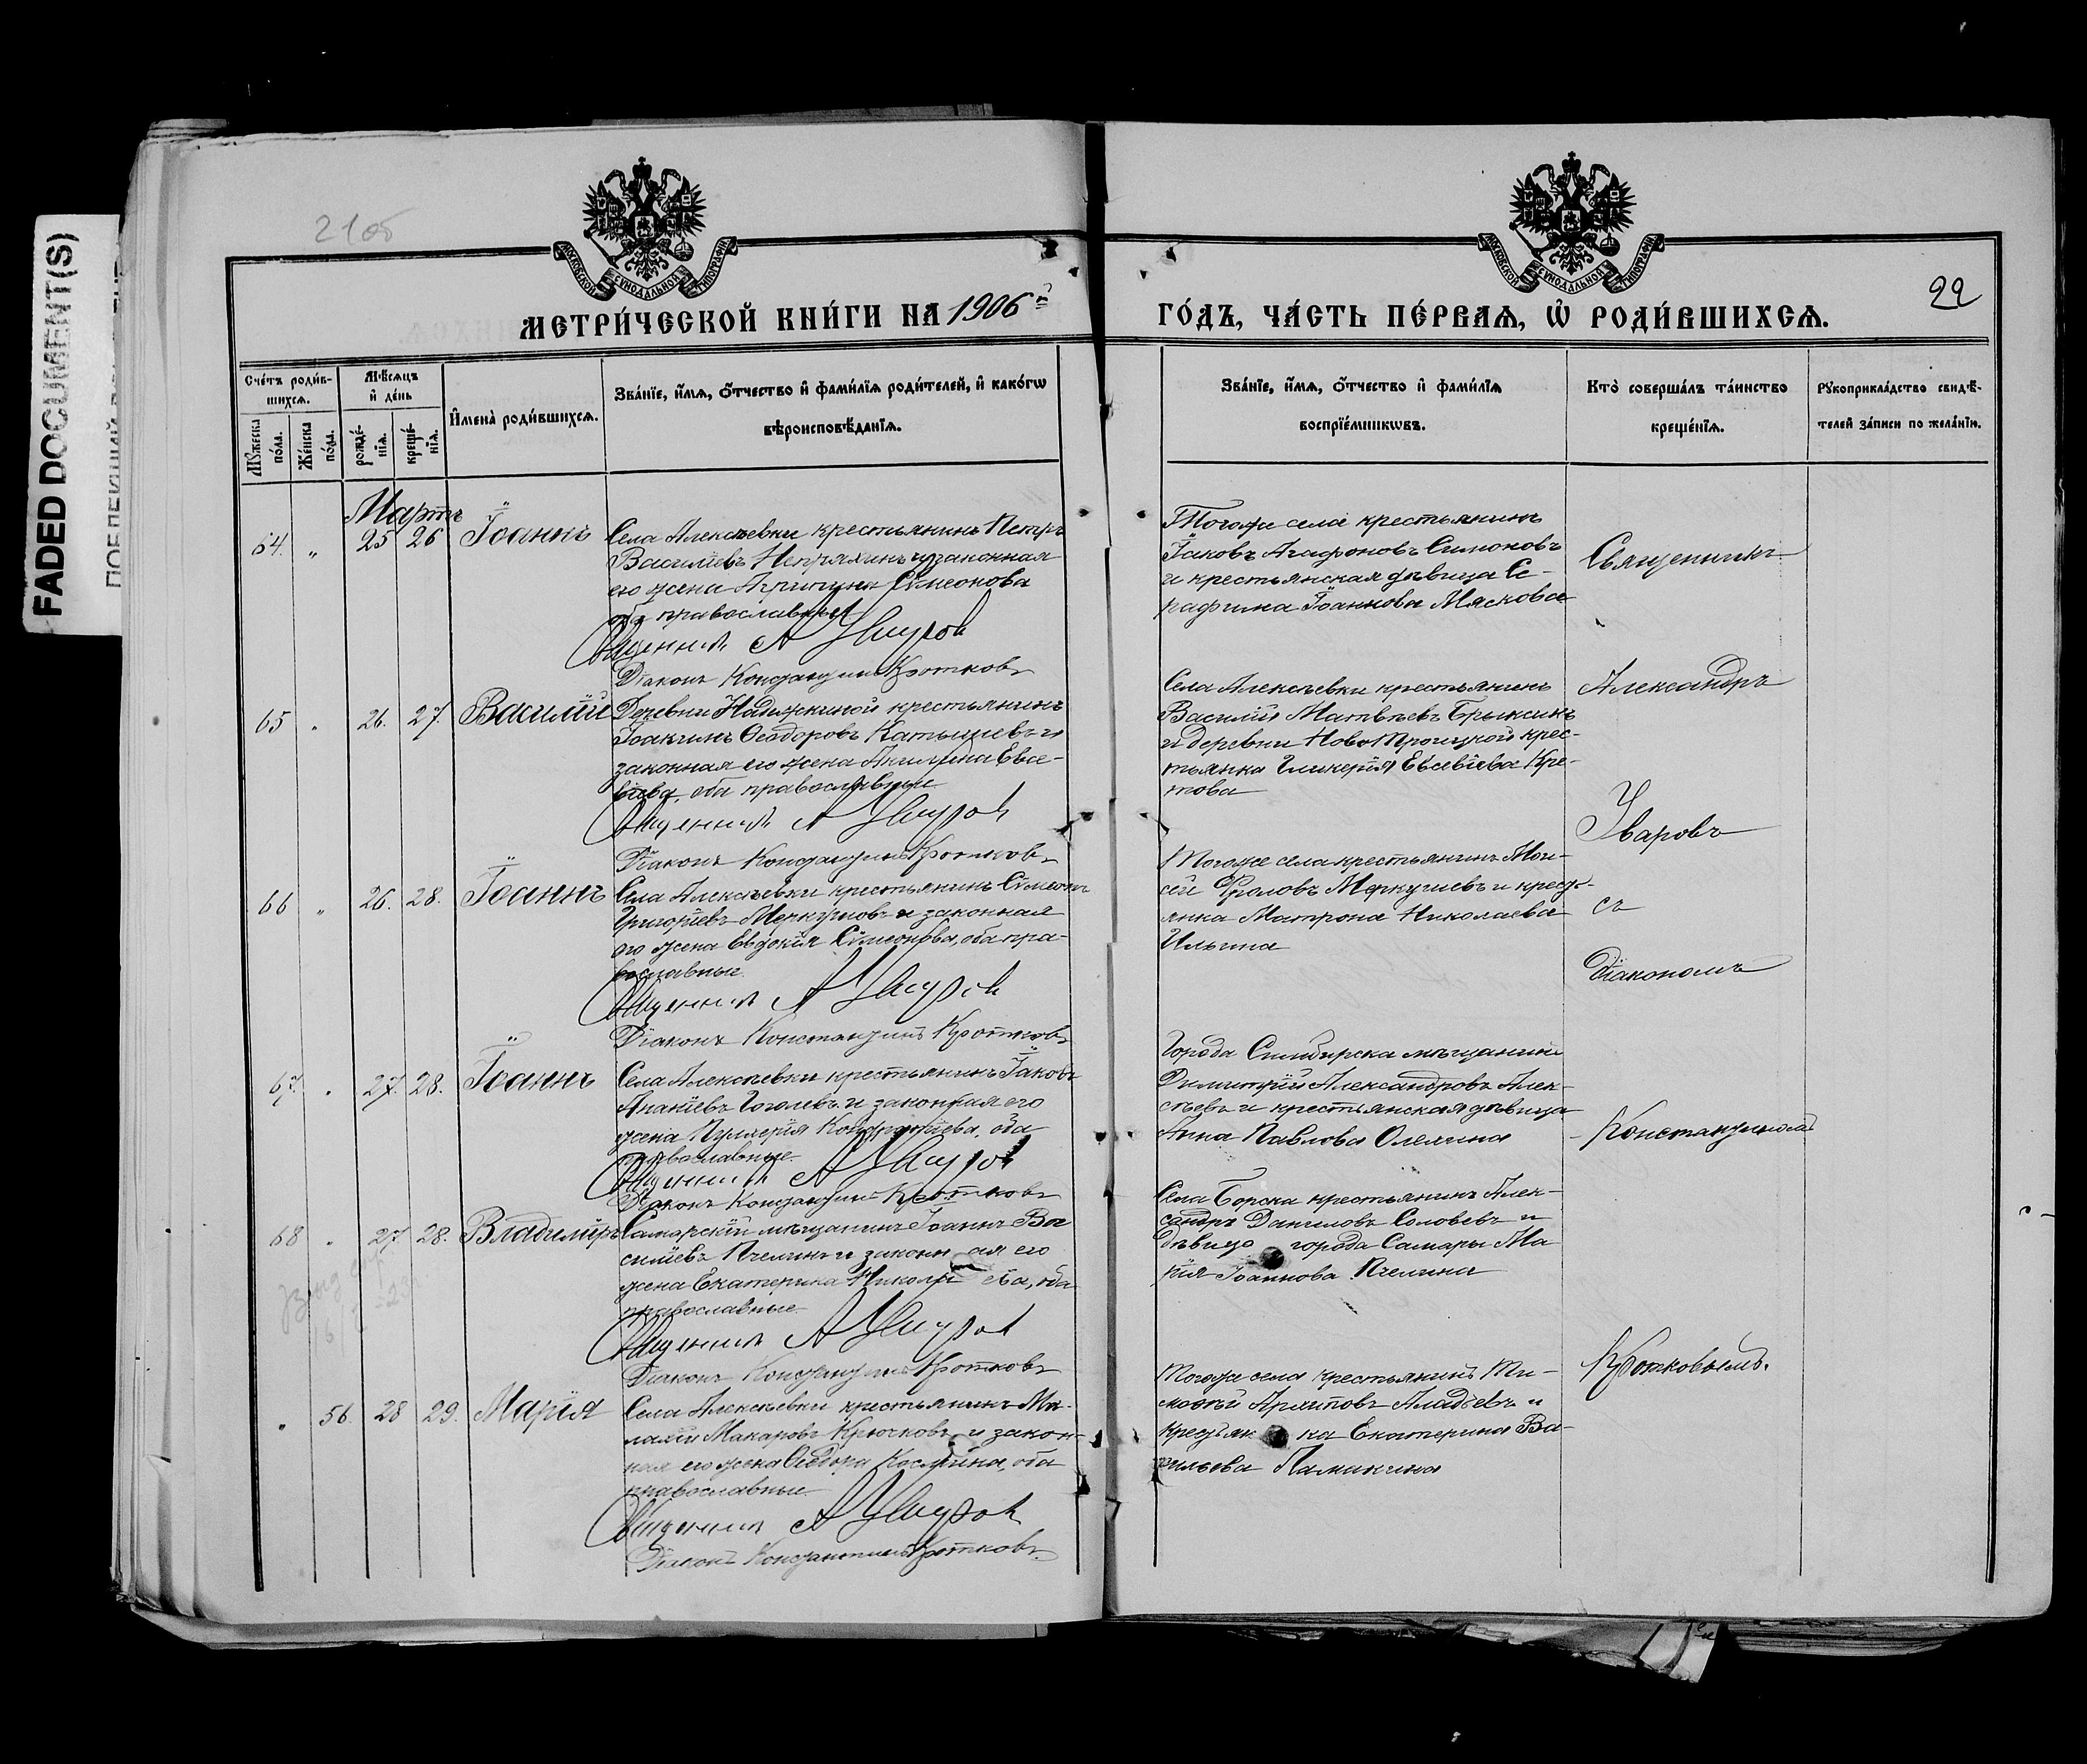 FADED DOCUMENT(S)
21об
МОСКОВСКОЙ СѴНОДАЛЬНОЙ ТИПОГРАФІИ
МОСКОВСКОЙ СѴНОДАЛЬНОЙ ТИПОГРАФІИ
22
МЕТРИ́ЧЕСКОЙ КНИ́ГИ НА 1906й
ГО́ДЪ, ЧА́СТЬ ПЕ́РВАѦ, Ѡ҆ РОДИ́ВШИХСѦ.
Сче́тъ роди́в-
шихсѧ.
Мꙋ́жеска по́ла.
Же́нска по́ла.
Мѣ́сѧцъ
и҆ де́нь
рожде́-
нїѧ.
креще́-
нїѧ.
И҆мена̀ роди́вшихсѧ.
Зва́нїе, и҆́мѧ, ѻ҆́тчество и҆ фами́лїѧ роди́телей, и҆ како́гѡ
вѣроисповѣ́данїѧ.
Зва́нїе, и҆́мѧ, ѻ҆́тчество и҆ фами́лїѧ
воспрїе́мникѡвъ.
Кто̀ соверша́лъ та́инство
креще́нїѧ.
Рꙋкоприкла́дство свидѣ́-
телей за́писи по жела́нїю.
Мартъ
64. " 25 26 Іоаннъ
Села Алексѣевки крестьянинъ Петръ
Василіевъ Непряхинъ и законная
его жена Агрипина Сѵмеонова
оба православные
Священникъ А Уваровъ
Діаконъ Константинъ Кротковъ
Тогоже села крестьянинъ
Іаковъ Агафоновъ Симоновъ
и крестьянская дѣвица Се-
рафима Іоаннова Мяскова
65 " 26. 27. Василій
Деревни Надежкиной крестьянинъ
Іоакимъ Ѳеодоровъ Катышевъ и
законная его жена Акилина Евсе-
віева, оба православные
Священникъ А Уваровъ
Діаконъ Константинъ Кротковъ
Села Алексѣевки крестьянинъ
Василій Матвѣевъ Брыксинъ
и деревни Ново Троицкой крес-
тьянка Гликерія Евсевіева Кре-
това
66 " 26. 28. Іоаннъ
Села Алексѣевки крестьянинъ Сѵмеонъ
Григоріевъ Меркуловъ и законная
его жена Евдокія Сѵмеонова, оба пра-
вославные
Священникъ А Уваровъ
Діаконъ Константинъ Кротковъ
Тогоже села крестьянинъ Мои-
сей Фроловъ Меркушевъ и крест-
янка Матрона Николаева
Ильина
67. " 27. 28. Іоаннъ
Села Алексѣевки крестьянинъ Іаковъ
Ананіевъ Гоголевъ и законная его
жена Пулхерія Кондратіева, оба
православные
Священникъ А Уваровъ
Діаконъ Константинъ Кротковъ
Города Симбирска мѣщанинъ
Димитрій Александровъ Алек-
сѣевъ и крестьянская дѣвица
Анна Павлова Олехина
68 " 27. 28. Владиміръ
Самарскій мѣщанинъ Іоаннъ Ва
силіевъ Пчелинъ и законн ая его
жена Екатерина Никола ева, оба
православные
Священникъ А Уваровъ
Діаконъ Константинъ Кротковъ
Села Борска крестьянинъ Алек-
сандръ Даниловъ Соловьевъ и
дѣвица города Самары Ма
рія Іоаннова Пчелина
" 56. 28 29. Марія
Села Алексѣевки крестьянинъ Ма-
лахій Макаровъ Крючковъ, и закон-
ная его жена Ѳеодора Космина, оба
православные
Священникъ А Уваровъ
Діаконъ Константинъ Кротковъ
Тогоже села крестьянинъ Ти-
моѳей Архиповъ Аладьевъ и
крестьян ка Екатерина Ва-
сильева Памакина
Священникъ
Александръ
Уваровъ
съ
Діакономъ
Константиномъ
Кротковымъ.